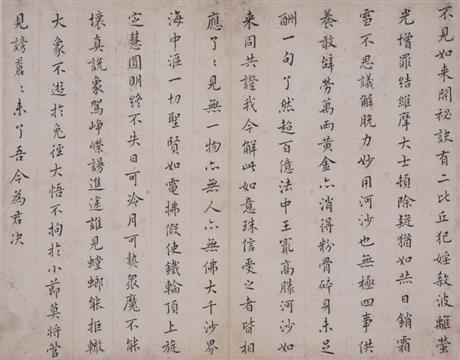 不見如来開祕訣有二比丘犯婬殺波離螢
光增罪結維摩大士頓除疑猶如赫日銷霜
雪不思議解脫力妙用河沙也無極四事供
養敢辤勞萬兩黃金亦消得粉骨碎身未足
酬一句了然超百億法中王冣高勝河沙如
来同共證我今解此如意珠信受之者皆相
應了〻見無一物亦無人亦無佛大千沙界
海中漚一切聖賢如電拂假使鐵輪頂上旋
定慧圓明終不失日可冷月可熱衆魔不能
壞真說象駕崢嶸謾進途誰見螳螂能拒轍
大象不遊於兔徑大悟不拘於小節莫將管
見謗蒼〻未了吾今為君決